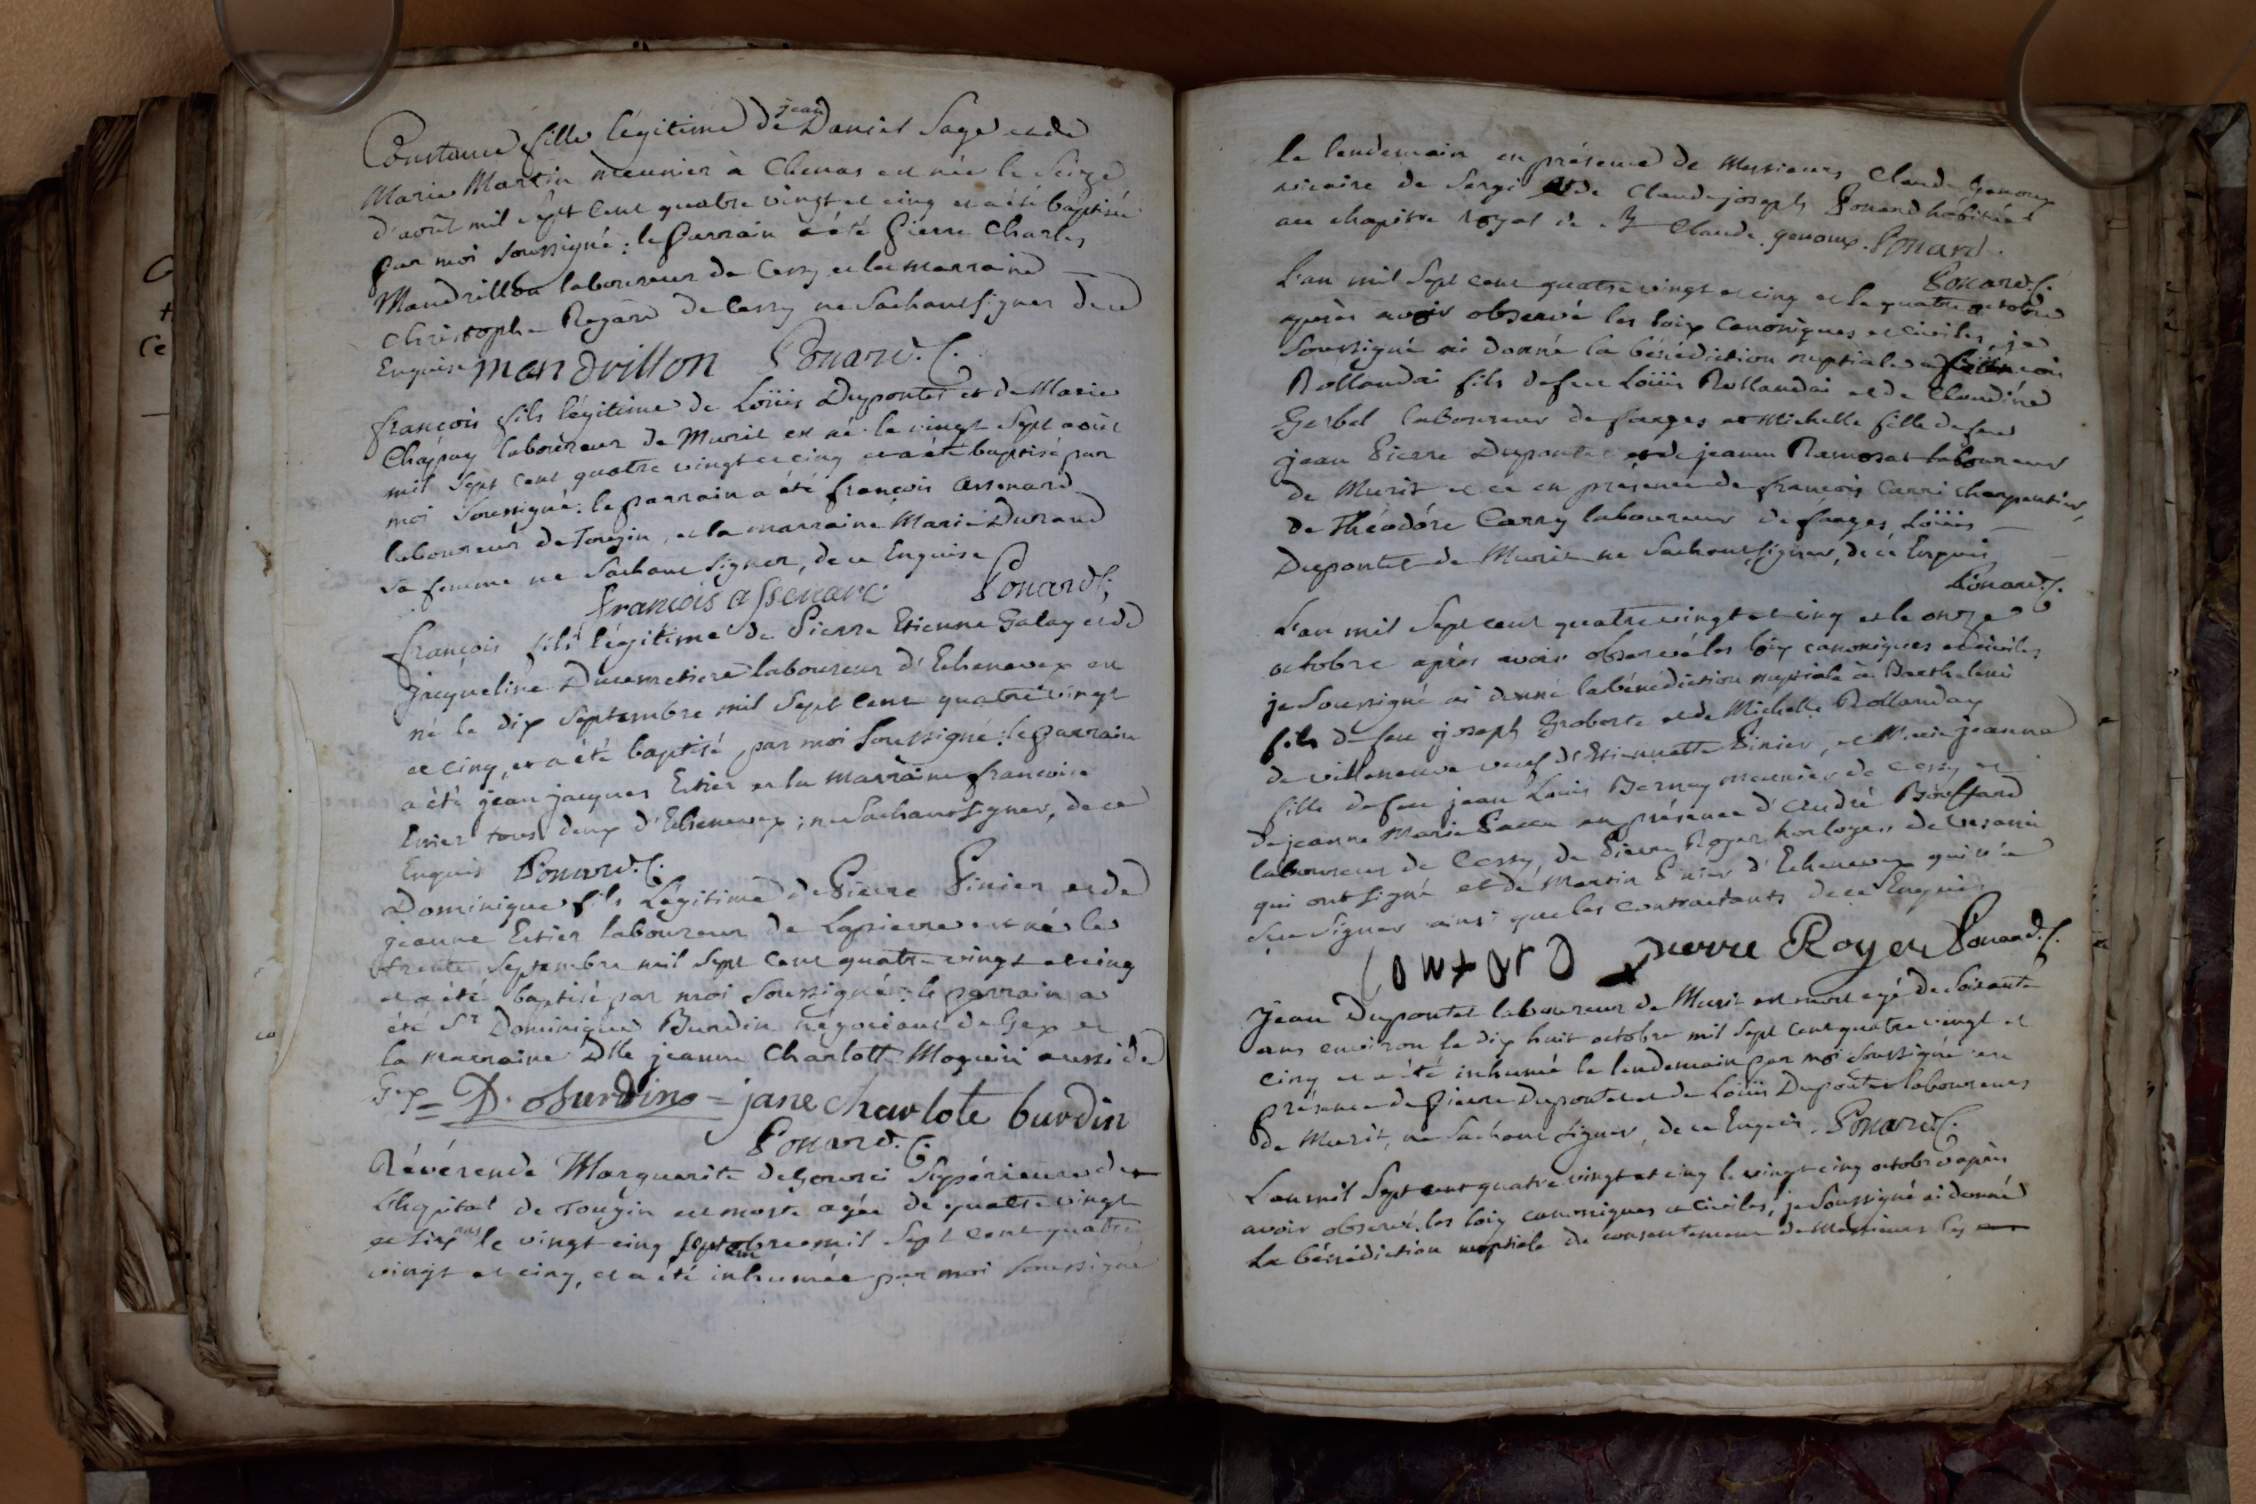 Constance fille légitime de jean Daniel Sage et de
Marie Martin meunier à Chenas est née le seize
d'août mil sept cent quatre vingt et cinq et a été baptisée
par moi soussigné : le parrain a été Pierre Charles
Mandrillon laboureur de Cessy et la marraine
Christophe Regard de Cessy ne sachant signer de ce
Enquise mandrillon Ponard. C.
françois fils légitime de Loüis Dupontet et de Marie
Chapuy laboureur de Murit est né le vingt sept août
mil sept cent quatre vingt et cinq et a été baptisé par
moi soussigné : le parrain a été françois assenard
laboureur de Tougin, et la marraine Marie Durand
sa femme ne sachant signer, de ce Enquise
françois assenard Ponard C.
françois fils légitime de Pierre Etienne Galay et de
jacqueline Ducimetiere laboureur d'Echenevex est
né le dix septembre mil sept cent quatre vingt
et cinq, et a été baptisé par moi soussigné : le parrain
a été jean jacques Estier et la marraine françoise
Estier tous deux d'Echenevex ; ne sachant signer, de ce
Enquis Ponard. C.
Dominique fils légitime de Pierre Pinier et de
jeanne Estier laboureur de Lapierre est né le
trente septembre mil sept cent quatre vingt et cinq
et a été baptisé par moi soussigné : le parrain a
été Sr Dominique Burdin négociant de Gex et
la marraine Dlle jeanne Charlotte aussi de
Gex = D. Burdin = jane charlote burdin
Ponard. C.
Révérende Marguerite supérieure de
L'hopital de Tougin est morte agée de quatre vingt
et six ans le vingt cinq septembre mil sept cent quatre
vingt et cinq, et a été inhumée par moi soussigné
le lendemain en présence de Messieurs Claude genoux
vicaire de Sergi et de Claude joseph Ponard habitué
au chapitre royal de St Claude. genoux. Ponard.
Ponard. C.
L'an mil sept cent quatre vingt et cinq et le quatre octobre
après avoir observé les loix canoniques et civiles, je
soussigné ai donné la bénédiction nuptiale a françois
Rollandai fils de feu Loüis Rollandai et de Claudine
Gerbel laboureur de farges et Michelle fille de feu
jean Pierre Dupontet et de jeanne Ramosat laboureur
de Murit et ce en présence de françois Carri charpentier,
de Théodore Carry laboureur de farges, Loüis
Dupontet de Murit ne sachant signer, de ce Enquis
Ponard. C.
L'an mil sept cent quatre vingt et cinq et le onze
octobre après avoir observé les loix canoniques et civiles
je soussigné ai donné la bénédiction nuptiale à Barthelemi
fils de feu joseph Groboste et de Michelle Rollanday
de villeneuve veuf d'Etiennette Pinier, et Marie jeanne
fille de feu jean Louis Bernay meunier de Cessy et
de jeanne Marie en présence d'André Bouffard
laboureur de Cessy, de Pierre Royer horloger de
qui ont signé et de Martin Pinier d'Echenevex qui n'a
su signer ainsi que les contractants de ce Enquis
pierre Royer Ponard. C.
Jean Dupontet laboureur de Murit est mort agé de soixante
ans environ le dix huit octobre mil sept cent quatre vingt et
cinq et a été inhumé le lendemain par moi soussigné en
présence de Pierre Dupontet et de Loüis Dupontet laboureurs
de Murit, ne sachant signer, de ce Enquis. Ponard C.
L'an mil sept cent quatre vingt et cinq le vingt cinq octobre après
avoir observé les loix canoniques et civiles, je soussigné ai donné
la bénédiction nuptiale du consentement de Messieurs les